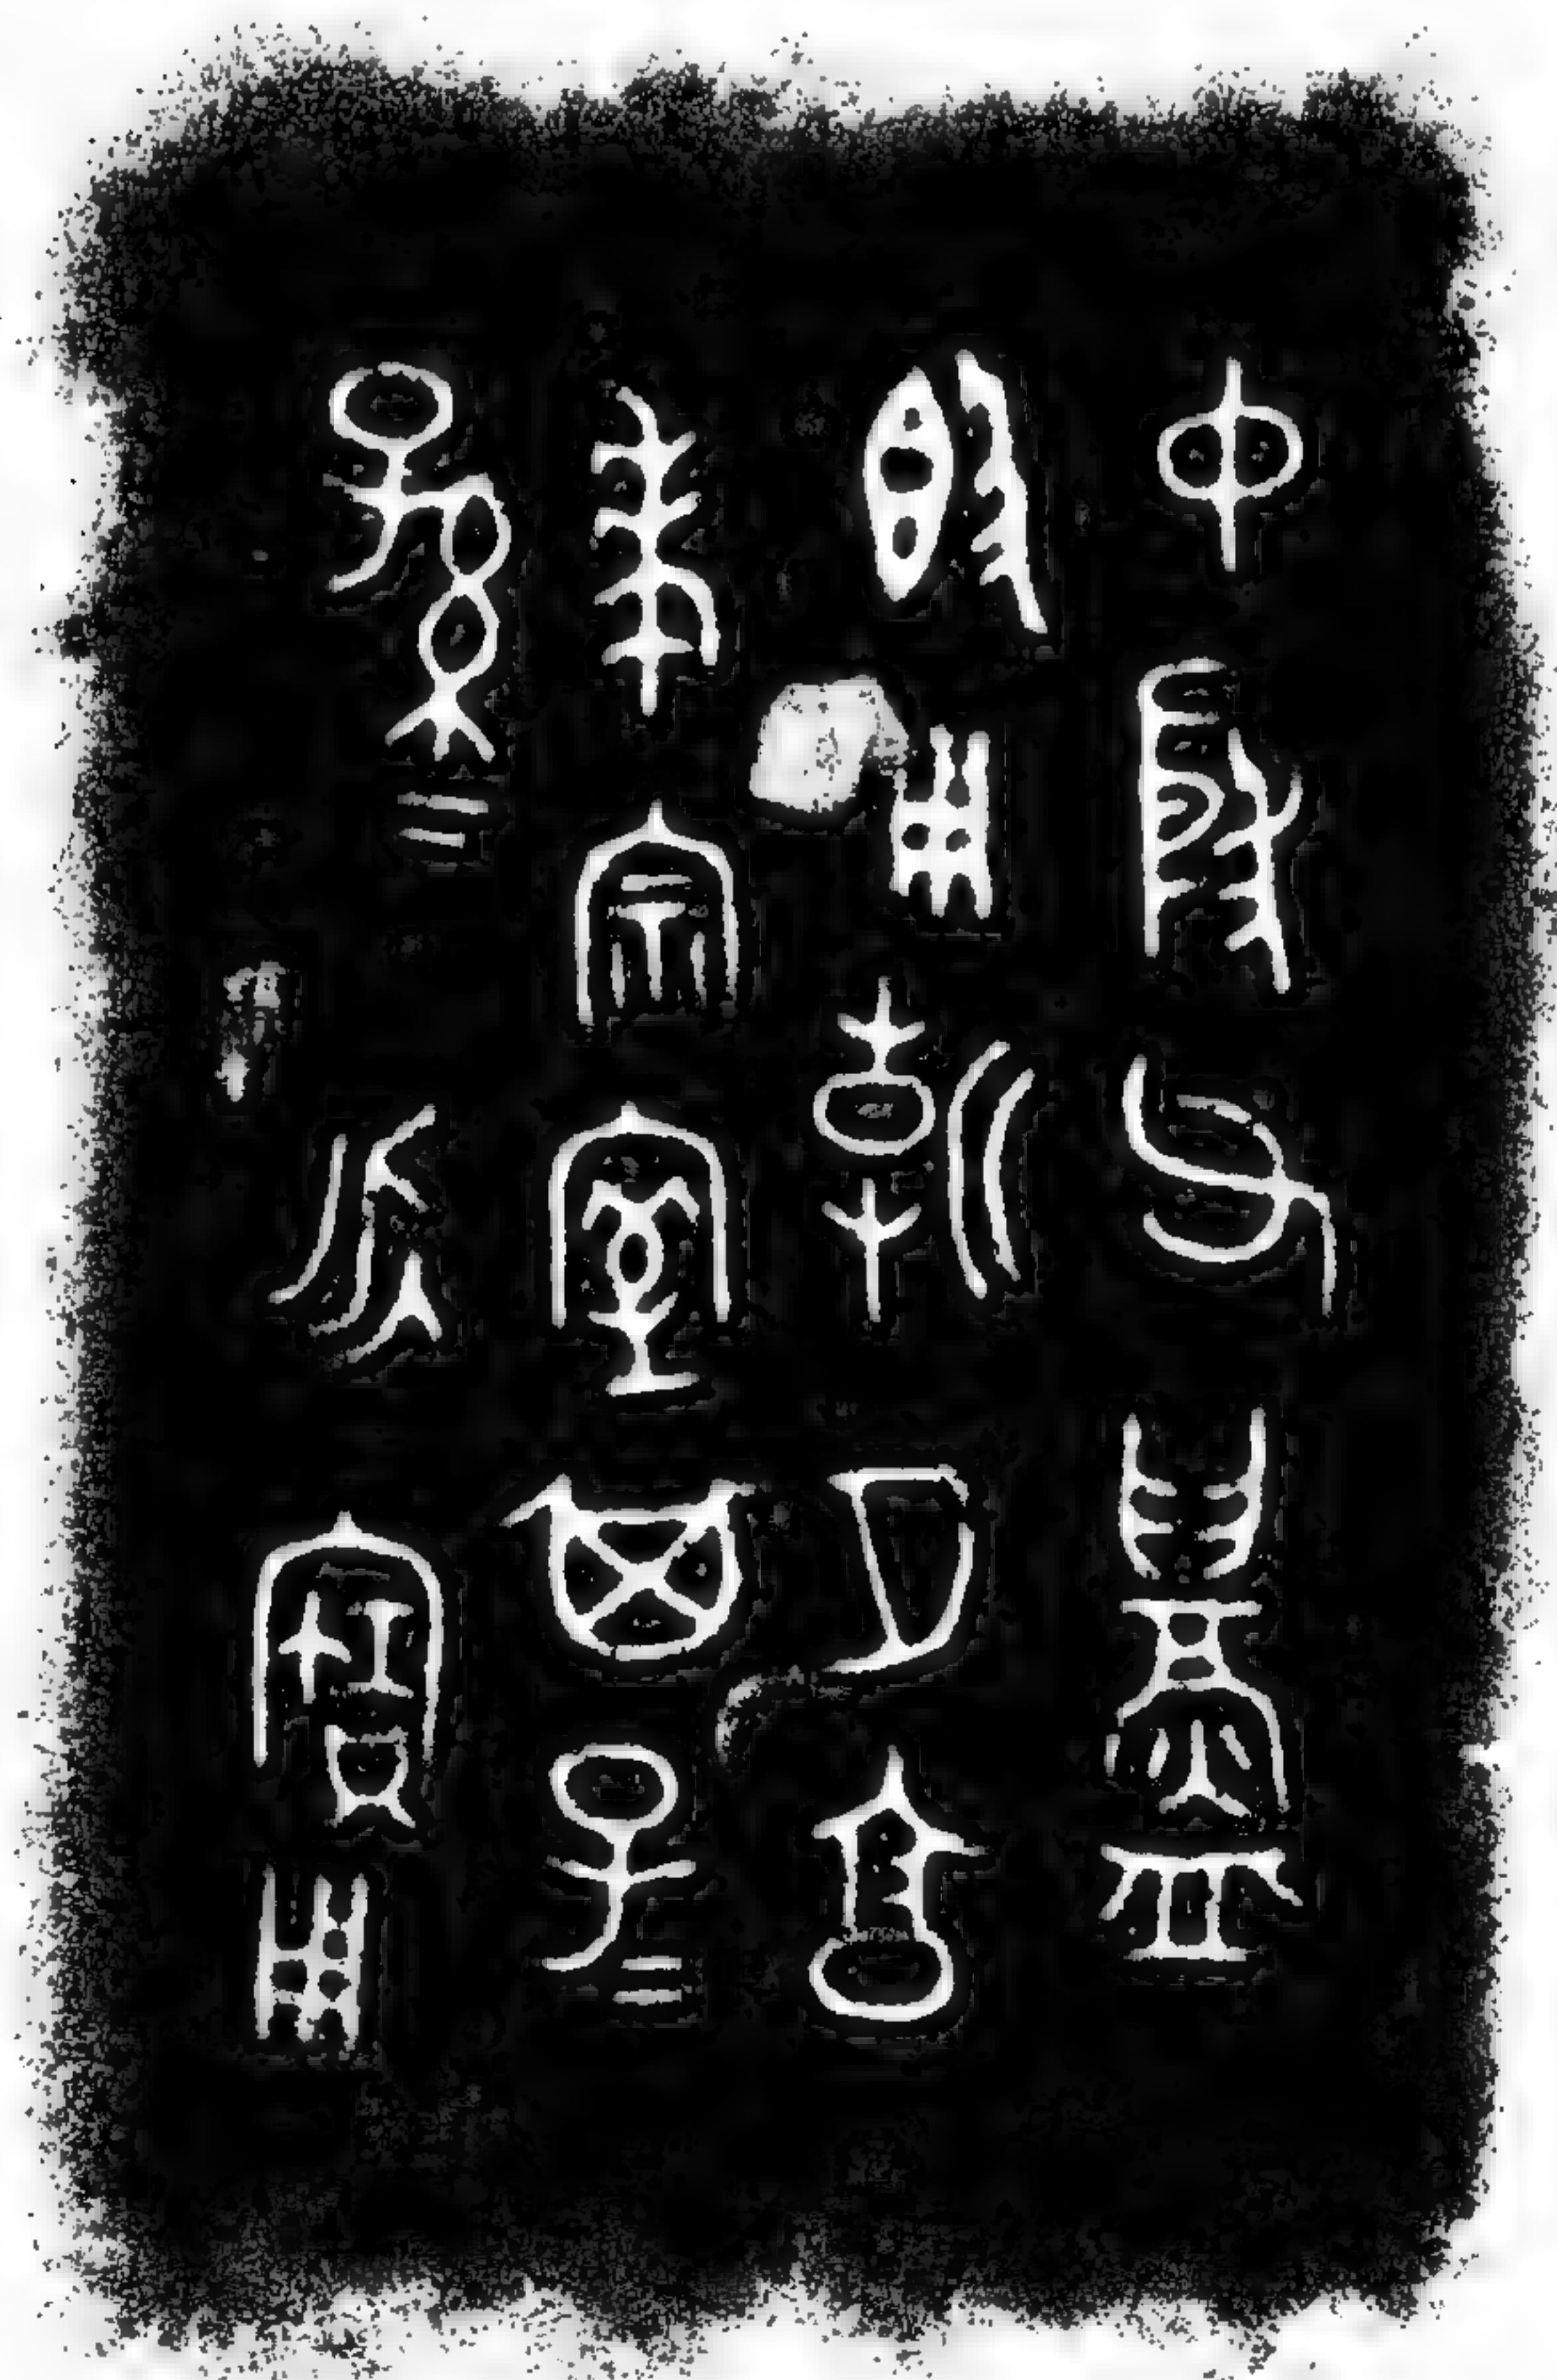 中殷父鑄
簋用朝夕享
孝宗室其子=
孫=永寶用